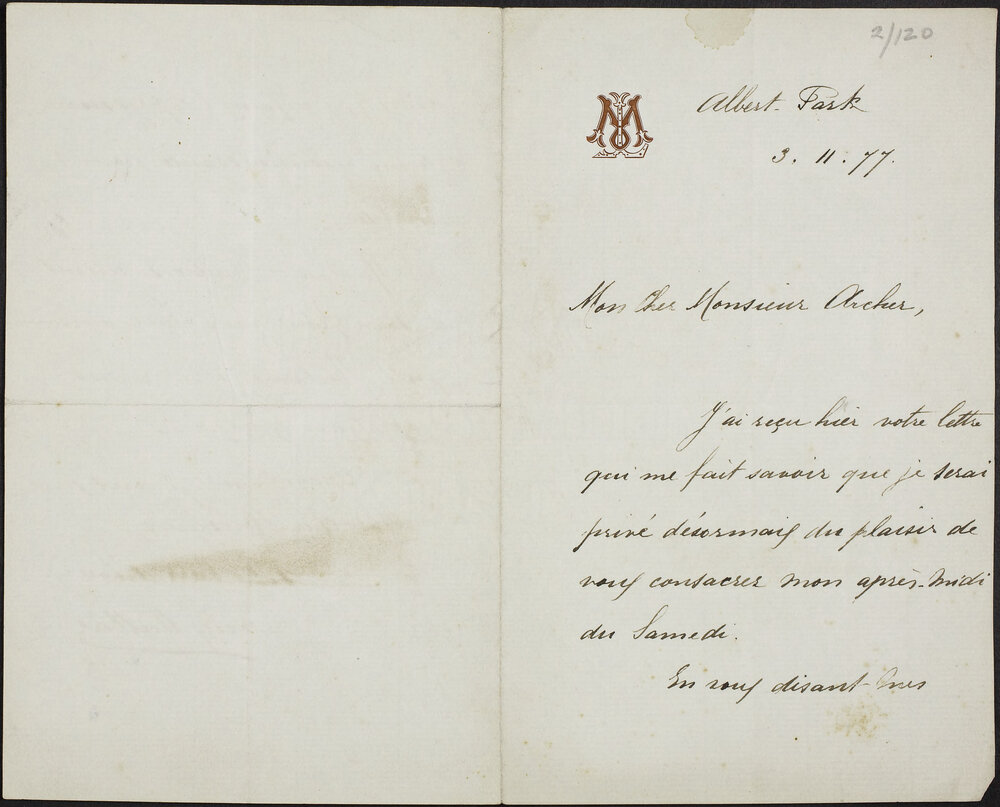 2/120
Albert Park
3. 11. 77.
Mon Cher Monsieur Archer,
J'ai reçu hier votre lettre
qui me fait savoir que je serai
privé désormais du plaisir de
vous consacrer mon après-midi
du Samedi.
En vous disant mes